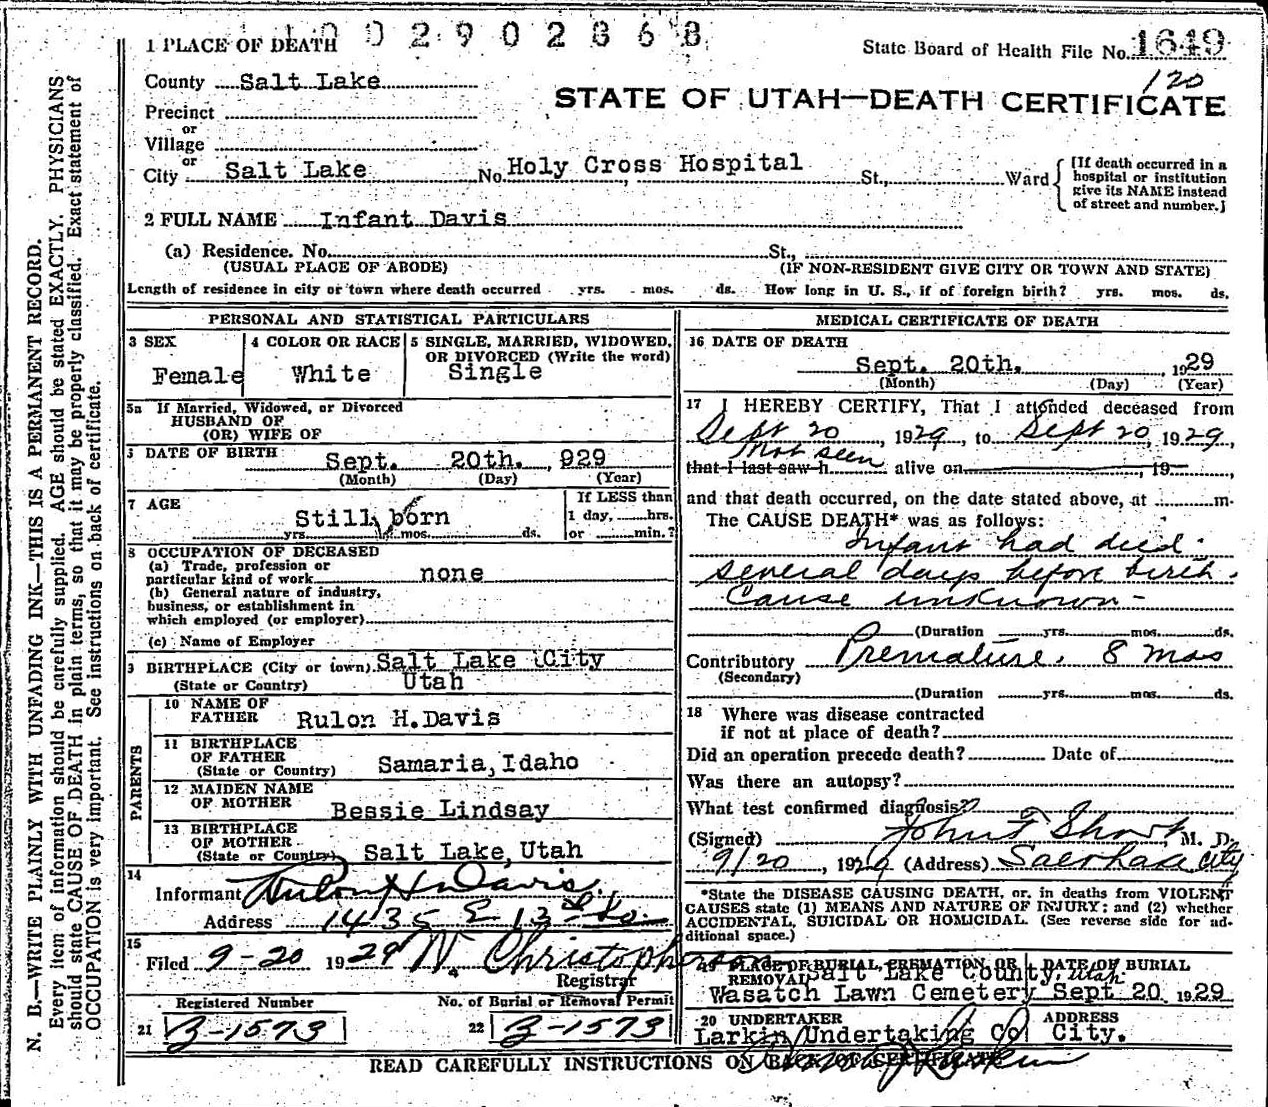 1 0 0 2 9 0 2 3 6 8
1 PLACE OF DEATH
State Board of Health File No. 1649
120
County Salt Lake
STATE OF UTAH—DEATH CERTIFICATE
Precinct
or
Village
or
City Salt Lake No. Holy Cross Hospital St., Ward
[If death occurred in a
hospital or institution
give its NAME instead
of street and number.]
2 FULL NAME Infant Davis
(a) Residence. No. St.,
(USUAL PLACE OF ABODE) (IF NON-RESIDENT GIVE CITY OR TOWN AND STATE)
Length of residence in city or town where death occurred yrs. mos. ds. How long in U. S., if of foreign birth? yrs. mos. ds.
PERSONAL AND STATISTICAL PARTICULARS
3 SEX
Female
4 COLOR OR RACE
White
5 SINGLE, MARRIED, WIDOWED,
OR DIVORCED (Write the word)
Single
5a If Married, Widowed, or Divorced
HUSBAND OF
(OR) WIFE OF
6 DATE OF BIRTH Sept. 20th. , 929
(Month) (Day) (Year)
7 AGE
Still born
yrs. mos. ds.
If LESS than
1 day, hrs.
or min.?
8 OCCUPATION OF DECEASED
(a) Trade, profession or
particular kind of work none
(b) General nature of industry,
business, or establishment in
which employed (or employer)
(c) Name of Employer
9 BIRTHPLACE (City or town) Salt Lake City
(State or Country) Utah
PARENTS
10 NAME OF
FATHER Rulon H. Davis
11 BIRTHPLACE
OF FATHER
(State or Country) Samaria, Idaho
12 MAIDEN NAME
OF MOTHER Bessie Lindsay
13 BIRTHPLACE
OF MOTHER
(State or Country) Salt Lake, Utah
14
Informant Rulon H Davis.
Address 1435 E 13th So.
15
Filed 9-20 1929 N. Christopherson
Registrar
Registered Number
21 B-1573
No. of Burial or Removal Permit
22 B-1573
MEDICAL CERTIFICATE OF DEATH
16 DATE OF DEATH
Sept. 20th. , 1929
(Month) (Day) (Year)
17 I HEREBY CERTIFY, That I attended deceased from
Sept 20 , 1929, to Sept 20, 1929,
Not seen
that I last saw h alive on 19 ,
and that death occurred, on the date stated above, at m.
The CAUSE DEATH* was as follows:
Infant had died
several days before birth.
Cause unknown -
(Duration yrs. mos. ds.
Contributory Premature. 8 mos
(Secondary)
(Duration yrs. mos. ds.
18 Where was disease contracted
if not at place of death?
Did an operation precede death? Date of
Was there an autopsy?
What test confirmed diagnosis?
(Signed) John F Sharp, M. D.
9/20 , 1929 (Address) Salt Lake City
*State the DISEASE CAUSING DEATH, or, in deaths from VIOLENT
CAUSES state (1) MEANS AND NATURE OF INJURY; and (2) whether
ACCIDENTAL, SUICIDAL OR HOMICIDAL. (See reverse side for ad-
ditional space.)
19 PLACE OF BURIAL, CREMATION, OR
REMOVAL
DATE OF BURIAL
Salt Lake County, Utah.
Wasatch Lawn Cemetery Sept 20 1929
20 UNDERTAKER ADDRESS
Larkin Undertaking Co City.
READ CAREFULLY INSTRUCTIONS ON BACK OF CERTIFICATE
N. B.—WRITE PLAINLY WITH UNFADING INK—THIS IS A PERMANENT RECORD.
Every item of information should be carefully supplied. AGE should be stated EXACTLY. PHYSICIANS
should state CAUSE OF DEATH in plain terms, so that it may be properly classified. Exact statement of
OCCUPATION is very important. See instructions on back of certificate.